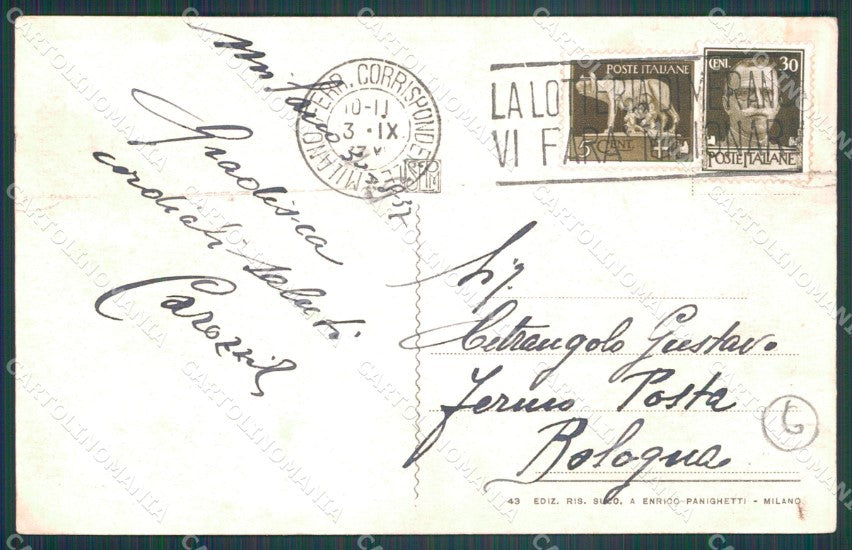 Milano
Gradisca
cordiali saluti
MILANO FERR. CORRISPONDENZE
10-11
3 · IX
LA LOTTERIA MERAN
VI FARÀ
POSTE ITALIANE
5 CENT
CENT. 30
POSTE ITALIANE
Sig.
Citrangolo Gustavo
Fermo Posta
Bologna
6
43 EDIZ. RIS. SUCC. A ENRICO PANIGHETTI - MILANO
CARTOLINOMANIA